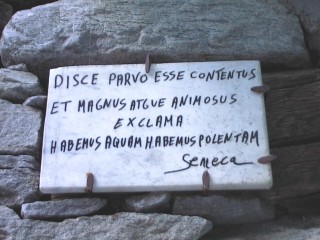 DISCE PARVO ESSE CONTENTUS
ET MAGNUS ATGUE ANIMOSUS
EXCLAMA
HABEMUS AQUAM HABEMUS POLENTAM
Seneca